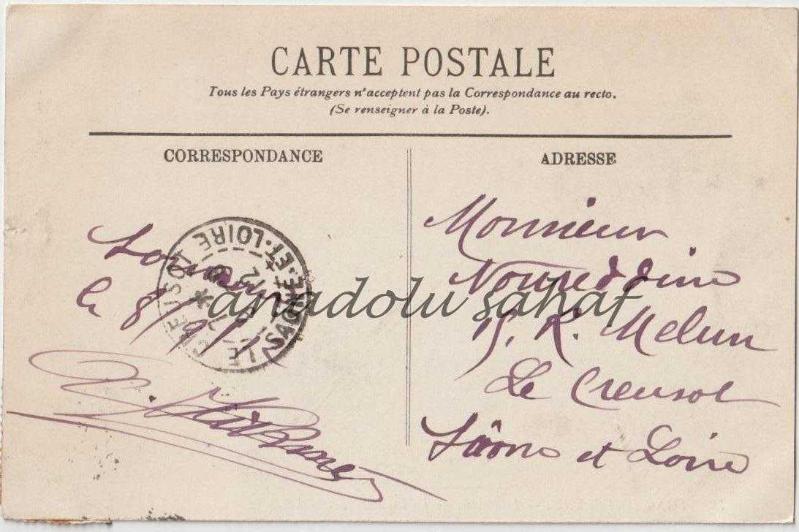 CARTE POSTALE
Tous les Pays étrangers n'acceptent pas la Correspondance au recto.
(Se renseigner à la Poste).
CORRESPONDANCE
le 8/9/
LE CREUSOT
SAÔNE-ET-LOIRE
12
ADRESSE
Monsieur
Noureddine
15, R. Melun
Le Creusot
Saône et Loire
anadolu sahaf